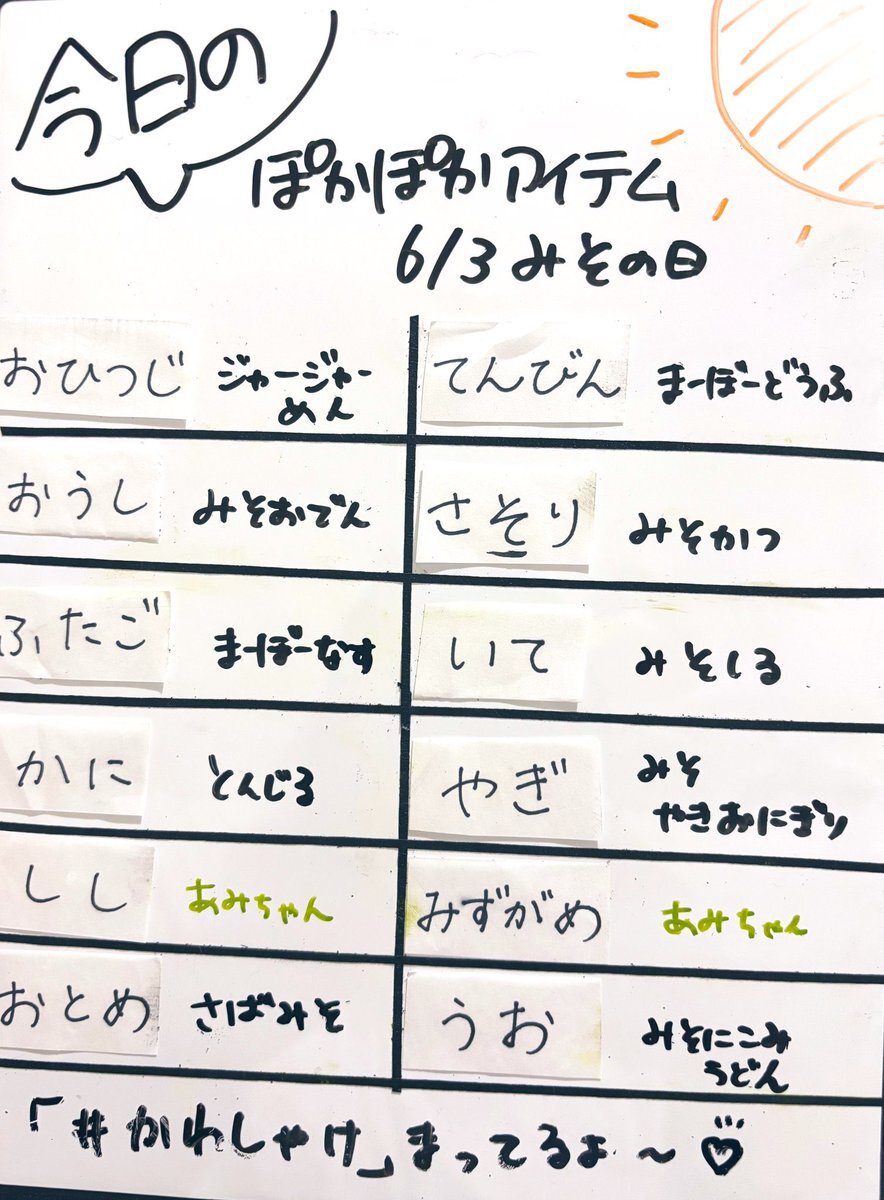 今日の
ぽかぽかアイテム
6/3 みその日
おひつじ ジャージャー
めん
おうし みそおでん
ふたご まーぼーなす
かに とんじる
しし あみちゃん
おとめ さばみそ
てんびん まーぼーどうふ
さそり みそかつ
いて みそしる
やぎ みそ
やきおにぎり
みずがめ あみちゃん
うお みそにこみ
うどん
「#かわしゃけ」まってるよ〜♡